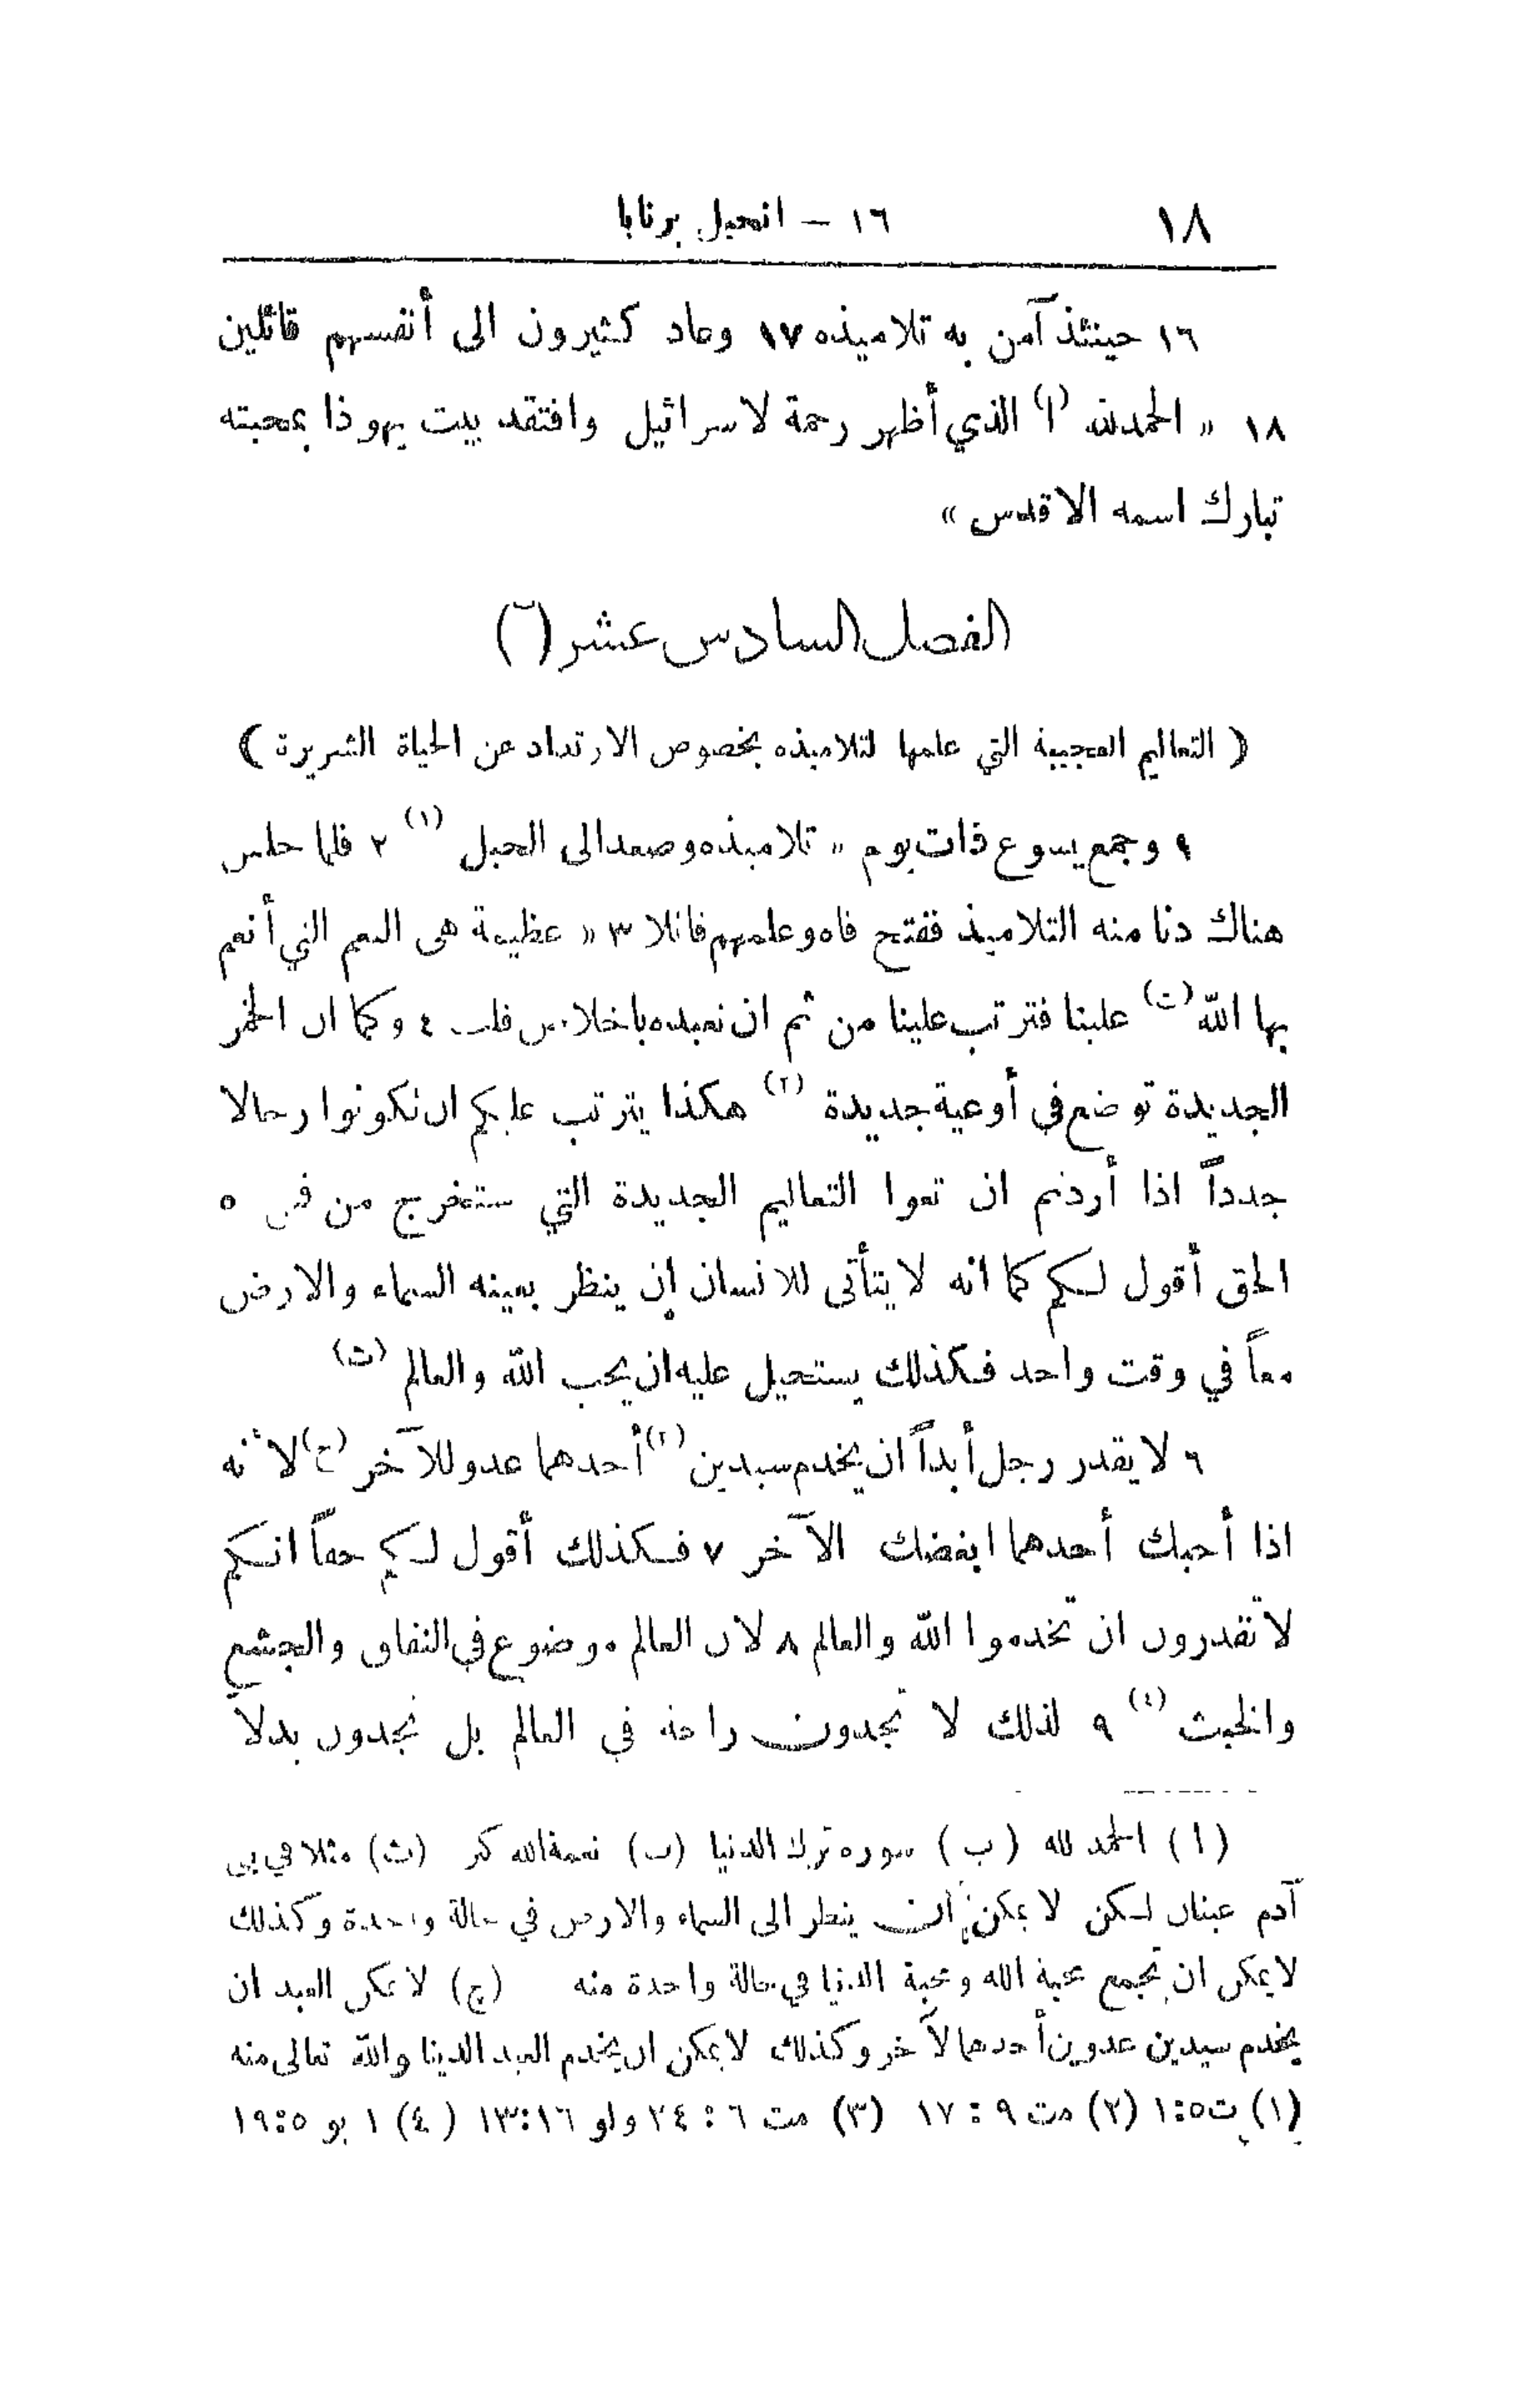 ١٨ ١٦ – انجيل برنابا
١٦ حينئذ آمن به تلاميذه ١٧ وعاد كثيرون الى أنفسهم قائلين
١٨ « الحمد لله (ا) الذي أظهر رحمة لاسرائيل وافتقد بيت يهوذا بمحبته
تبارك اسمه الاقدس »
الفصل السادس عشر (ب)
( التعاليم العجيبة التي علمها لتلاميذه بخصوص الارتداد عن الحياة الشريرة )
١ وجمع يسوع ذات يوم « تلاميذه وصعد الى الجبل (١) ٢ فلما جلس
هناك دنا منه التلاميذ ففتح فاه وعلمهم قائلا ٣ « عظيمة هي النعم التي أنعم
بها الله (ت) علينا فترتب علينا من ثم ان نعبده باخلاص قلب ٤ وكما ان الخمر
الجديدة توضع في أوعية جديدة (٢) هكذا يترتب عليكم ان تكونوا رجالا
جدداً اذا أردتم ان تعوا التعاليم الجديدة التي ستخرج من فمي ٥
الحق أقول لكم كما انه لا يتأتى للانسان ان ينظر بعينه السماء والارض
معاً في وقت واحد فكذلك يستحيل عليه ان يحب الله والعالم (ث)
٦ لا يقدر رجل أبداً ان يخدم سيدين (٣) أحدهما عدو للآخر (ج) لأنه
اذا أحبك أحدهما ابغضك الآخر ٧ فكذلك أقول لكم حقاً انكم
لا تقدرون ان تخدموا الله والعالم ٨ لان العالم موضوع في النفاق والجشع
والخبث (٤) ٩ لذلك لا تجدون راحة في العالم بل تجدون بدلاً
(ا) الحمد لله (ب) سوره ترك الدنيا (ت) نعمة الله كر (ث) مثلا في بني
آدم عينان لكن لا يمكن أن ينظر الى السماء والارض في حالة واحدة وكذلك
لا يمكن ان تجمع محبة الله ومحبة الدنيا في حالة واحدة منه (ج) لا يمكن العبد ان
يخدم سيدين عدوين أحدهما لآخر وكذلك لا يمكن ان يخدم العبد الدينا والله تعالى منه
(١) ت ٥:١ (٢) مت ٩ : ١٧ (٣) مت ٦ : ٢٤ ولو ١٦:١٣ (٤) ١ يو ٥:١٩